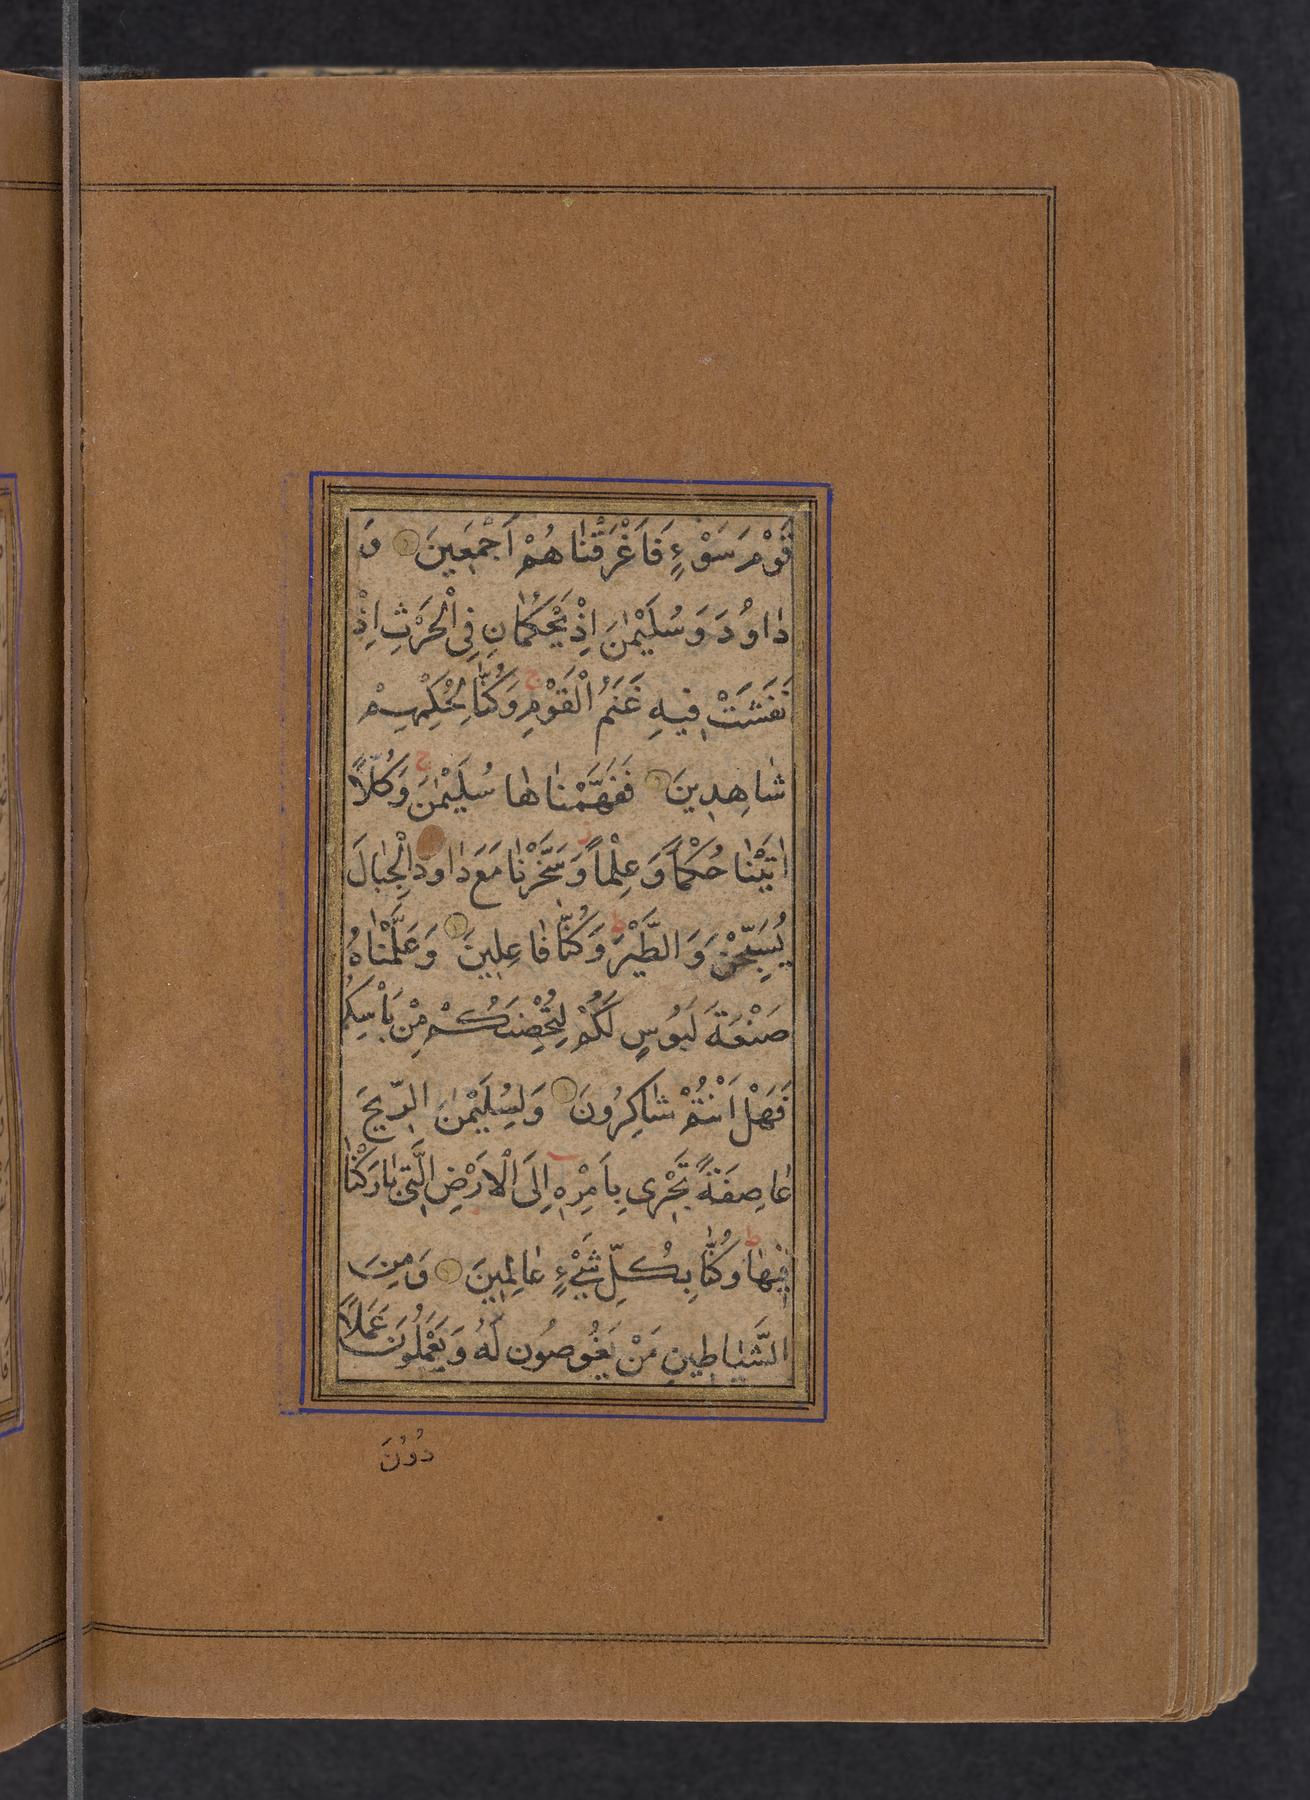 قَوْمَ سَوْءٍ فَاَغْرَقْنَاهُمْ اَجْمَعِينَ وَ
دَاوُدَ وَسُلَيْمٰنَ اِذْ يَحْكُمَانِ فِى الْحَرْثِ اِذْ
نَفَشَتْ فِيهِ غَنَمُ الْقَوْمِ ج وَكُنَّا لِحُكْمِهِمْ
شَاهِدِينَ فَفَهَّمْنَاهَا سُلَيْمٰنَ ج وَكُلّاً
اٰتَيْنَا حُكْمًا وَعِلْمًا ز وَسَخَّرْنَا مَعَ دَاوُدَ الْجِبَالَ
يُسَبِّحْنَ وَالطَّيْرَ ط وَكُنَّا فَاعِلِينَ وَعَلَّمْنَاهُ
صَنْعَةَ لَبُوسٍ لَكُمْ لِتُحْصِنَكُمْ مِنْ بَاْسِكُمْ
فَهَلْ اَنْتُمْ شَاكِرُونَ وَلِسُلَيْمٰنَ الرِّيحَ
عَاصِفَةً تَجْرِى بِاَمْرِهِ اِلَى الْاَرْضِ الَّتِى بَارَكْنَا
فِيهَا ط وَكُنَّا بِكُلِّ شَىْءٍ عَالِمِينَ وَمِنَ
الشَّيَاطِينِ مَنْ يَغُوصُونَ لَهُ وَيَعْمَلُونَ عَمَلًا
دُونَ